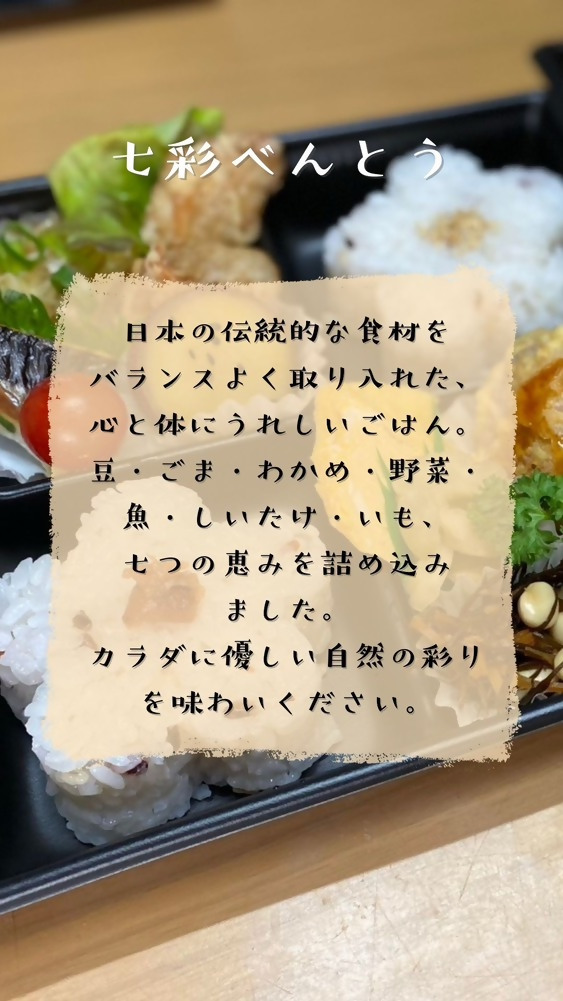 七彩べんとう
日本の伝統的な食材を
バランスよく取り入れた、
心と体にうれしいごはん。
豆・ごま・わかめ・野菜・
魚・しいたけ・いも、
七つの恵みを詰め込み
ました。
カラダに優しい自然の彩り
を味わいください。